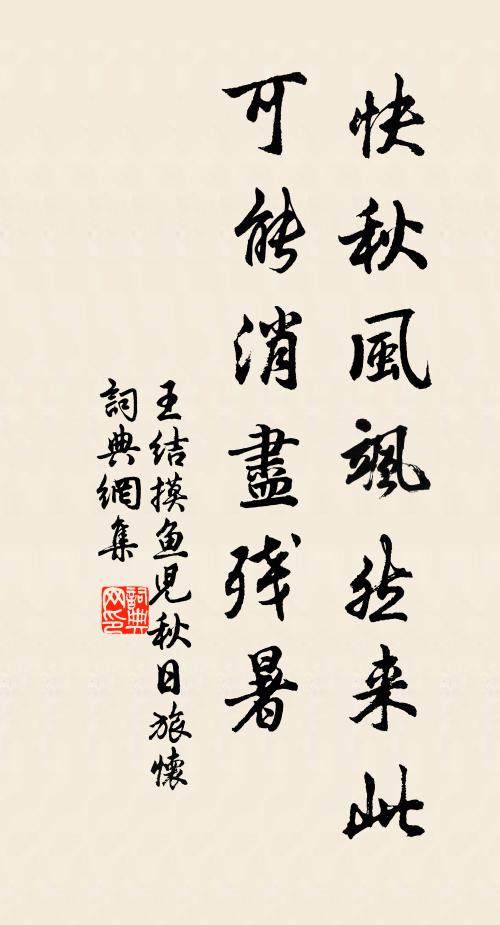 快秋風颯然来此
可能消盡残暑
王结摸鱼児秋日旅懷
詞典網集
詞典网印